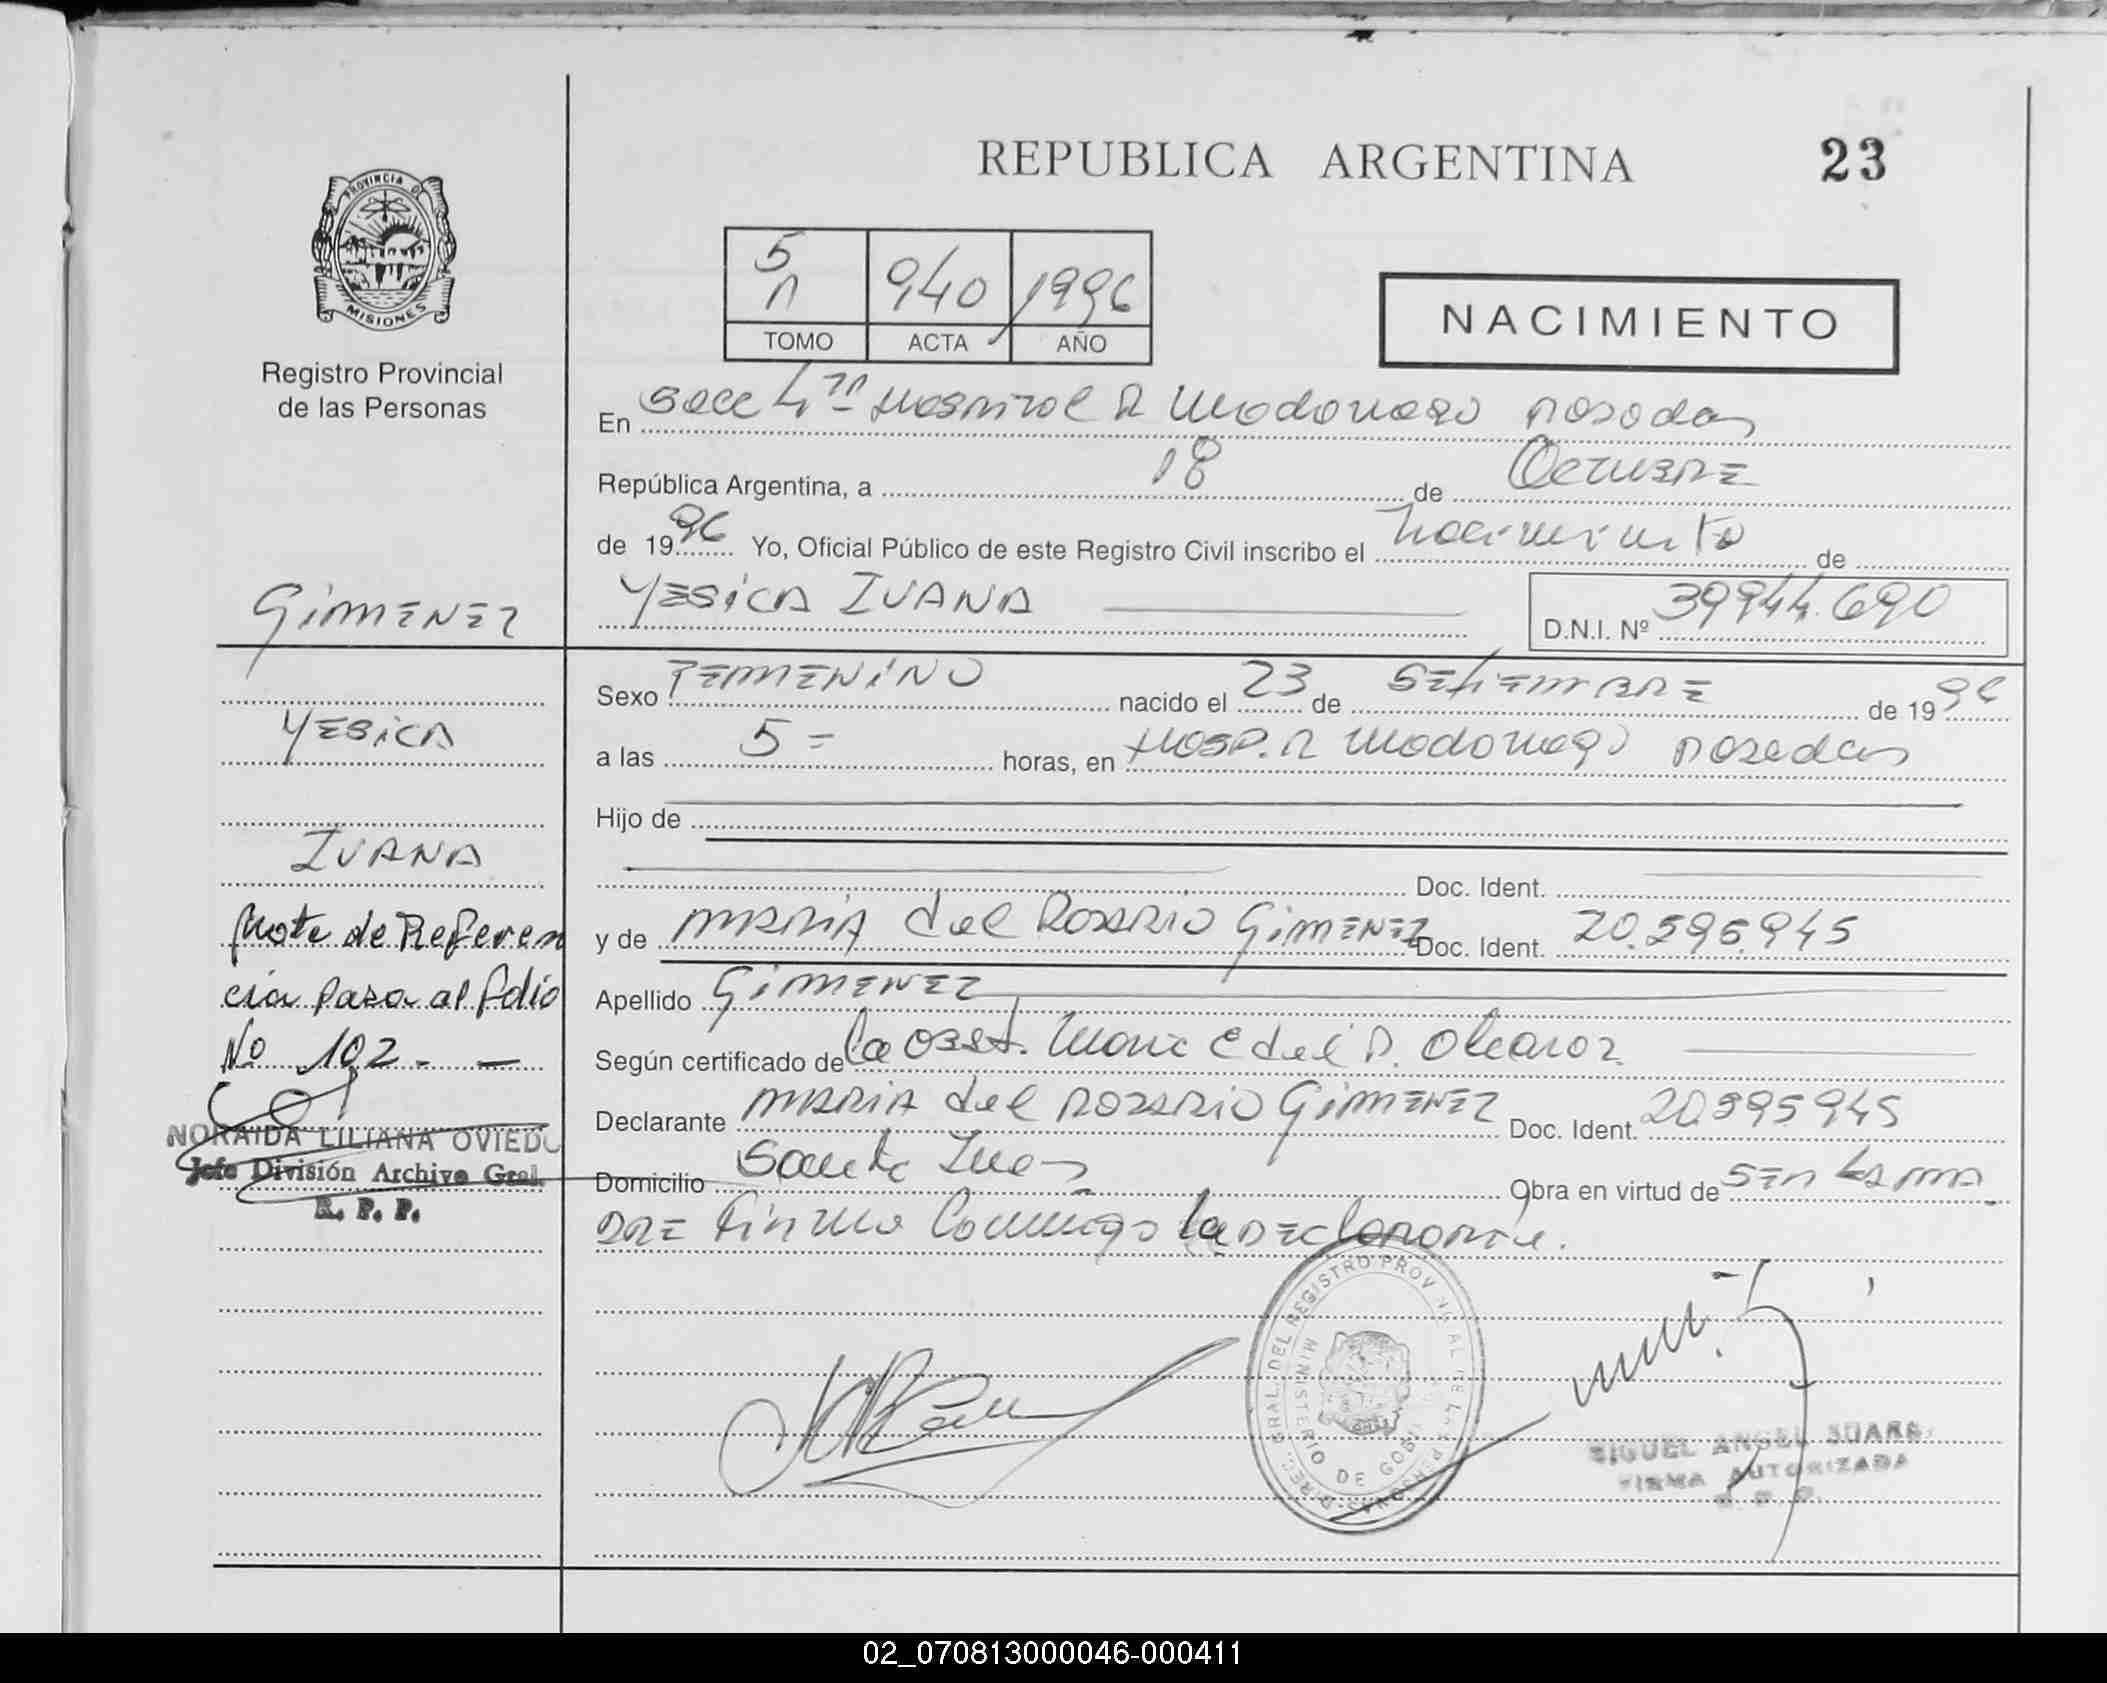 REPUBLICA ARGENTINA
23
PROVINCIA DE
MISIONES
Registro Provincial
de las Personas
5
940
1996
TOMO
ACTA
AÑO
NACIMIENTO
En Secc 4ta Hospital R Madariaga Posadas
República Argentina, a 18 de Octubre
de 1996 Yo, Oficial Público de este Registro Civil inscribo el nacimiento de
GIMENEZ
YESICA IVANA
D.N.I. Nº 39944.690
Sexo FEMENINO nacido el 23 de SETIEMBRE de 1996
YESICA
a las 5 = horas, en Hosp. R Madariaga Posadas
Hijo de
IVANA
Doc. Ident.
Nota de Referen
y de MARIA del ROSARIO GIMENEZ Doc. Ident. 20.395.945
cia pasa al folio
Apellido GIMENEZ
No 102.-
Según certificado de la Obst.
Declarante MARIA del ROSARIO GIMENEZ Doc. Ident. 20.395945
NORAIDA LILIANA OVIEDO
Jefe División Archivo Gral.
R. P. P.
Domicilio Santa Ines Obra en virtud de SER LA MA
DRE Firma Conmigo la DEClarante.
DIREC. GRAL. DEL REGISTRO PROVINCIAL DE LAS PERSONAS
MINISTERIO DE GOBI
MIGUEL ANGEL SUARE
FIRMA AUTORIZADA
R. P. P.
02_070813000046-000411